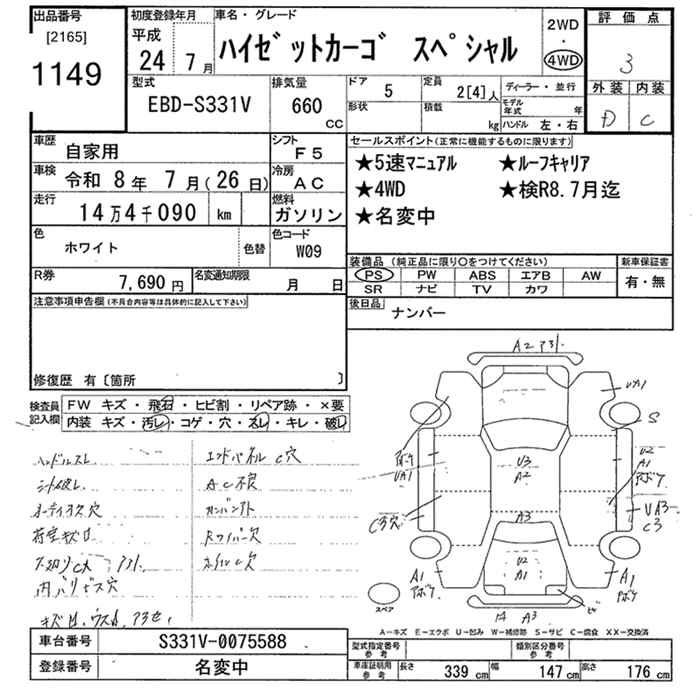 出品番号
[2165]
1149
初度登録年月
平成
24 7月
車名・グレード
ハイゼットカーゴ スペシャル
2WD
・
4WD
評価点
3
外装 内装
D C
型式
EBD-S331V
排気量
660
CC
ドア
5
形状
定員
2[4]人
積載
kg
ディーラー・並行
モデル年式 年
ハンドル 左・右
車歴
自家用
シフト
F5
車検
令和 8年 7月(26日)
冷房
AC
走行
14万4千090 km
燃料
ガソリン
色
ホワイト
色替
色コード
W09
R券
7,690円
名変通知期限
月 日
セールスポイント(正常に機能するものに限ります)
★5速マニュアル ★ルーフキャリア
★4WD ★検R8.7月迄
★名変中
装備品(純正品に限り○をつけてください)
PS PW ABS エアB AW
SR ナビ TV カワ
新車保証書
有・無
後日品
ナンバー
注意事項申告欄(不具合内容等は具体的に記入して下さい)
修復歴 有〔箇所 〕
検査員記入欄
FW キズ・飛石・ヒビ割・リペア跡・×要
内装 キズ・汚レ・コゲ・穴・スレ・キレ・破レ
ハンドルスレ
シート破レ
オーディオス穴
荷室キズ凹
内バリビス穴
エンドパネルC穴
AC不良
Rワイパー欠
A2
UA1
S
UA1
U3
A2
U2
A1
C3穴
A3
UA3
C3
U2
A1
A1
A1
A3
スペア
A―キズ E―エクボ U―凹み W―補修跡 S―サビ C―腐食 XX―交換済
車台番号
S331V-0075588
登録番号
名変中
型式指定番号
参考
類別区分番号
参考
車庫証明用
参考
長さ 339cm 幅 147cm 高さ 176cm